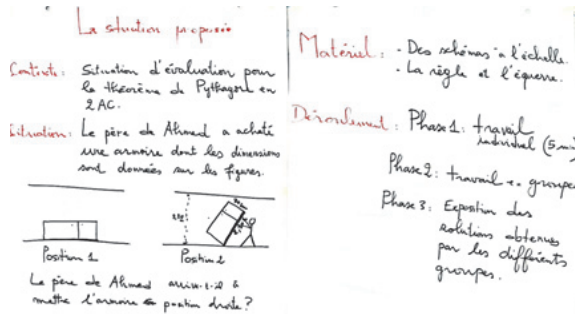 La situation proposée
Contexte: Situation d'évaluation pour
le théorème de Pythagore en
2 AC.
Situation: Le père de Ahmed a acheté
une armoire dont les dimensions
sont données sur les figures.
Position 1
Position 2
Le père de Ahmed arrive-t-il à
mettre l'armoire en position droite?
Matériel: - Des schémas à l'échelle.
- La règle et l'équerre.
Déroulement: Phase 1: travail
individuel (5 min)
Phase 2: travail en groupes
Phase 3: Exposition des
solutions obtenues
par les différents
groupes.